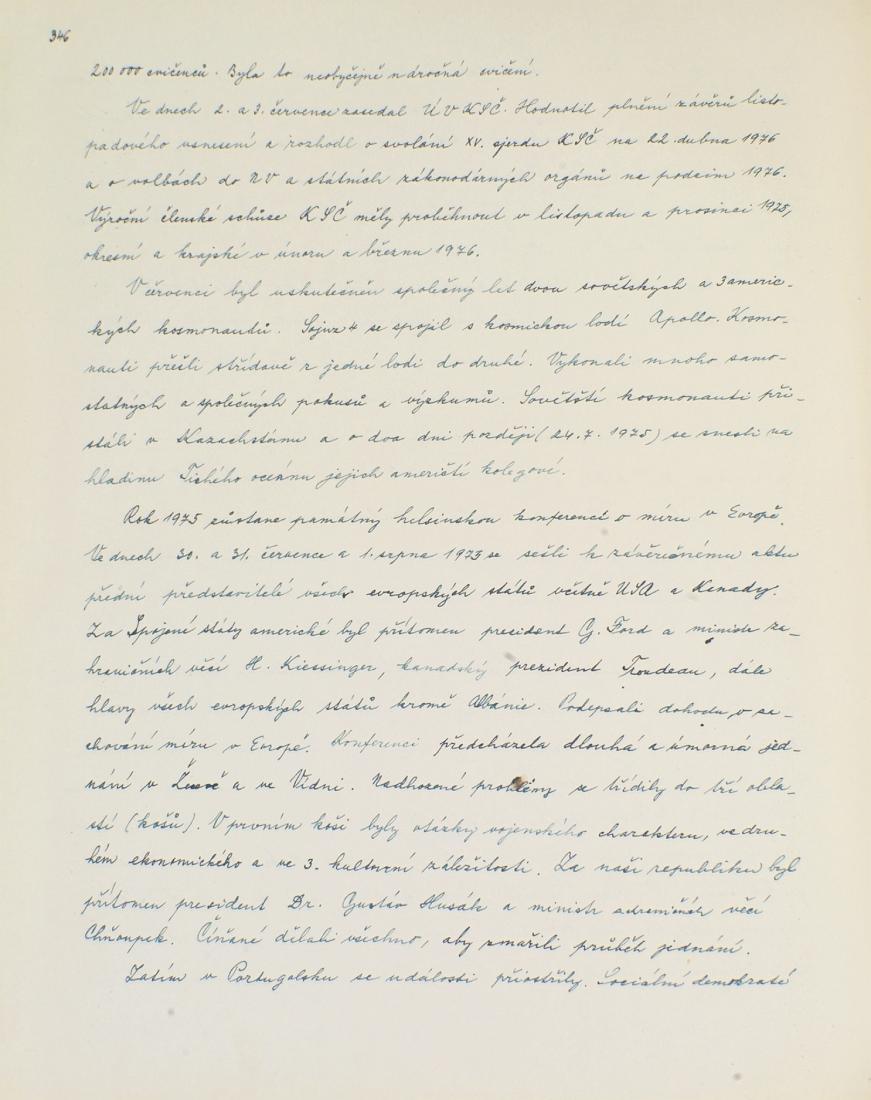 346
200 000 cvičenců. Byla to neobyčejně náročná cvičení.
Ve dnech 2. a 3. července zasedal ÚV KSČ. Hodnotil plnění závěrů listo-
padového usnesení a rozhodl o svolání XV. sjezdu KSČ na 22. dubna 1976
a o volbách do NV a státních zákonodárných orgánů na podzim 1976.
Výroční členské schůze KSČ měly proběhnout v listopadu a prosinci 1975,
okresní a krajské v únoru a březnu 1976.
V červenci byl uskutečněn společný let dvou sovětských a 3 americ-
kých kosmonautů. Sojuz 4 se spojil s kosmickou lodí Apollo. Kosmo-
nauti přešli střídavě z jedné lodi do druhé. Vykonali mnoho samo-
statných a společných pokusů a výzkumů. Sovětští kosmonauti při-
stáli v Kazachstánu a o dva dni později (24.7. 1975) se snesli na
hladinu Tichého oceánu jejich američtí kolegové.
Rok 1975 zůstane památný helsinskou konferencí o míru v Evropě.
Ve dnech 30. a 31. července a 1. srpna 1975 se sešli k závěrečnému aktu
přední představitelé všech evropských států včetně USA a Kanady.
Za Spojené státy americké byl přítomen president G. Ford a ministr za-
hraničních věcí H. Kiessinger, kanadský prezident Troudeau, dále
hlavy všech evropských států kromě Albánie. Podepsali dohodu o za-
chování míru v Evropě. Konferenci předcházela dlouhá a úmorná jed-
nání v Ženevě a ve Vídni. Nadhozené problémy se třídily do tří obla-
stí (košů). V prvním koši byly otázky vojenského charakteru, ve dru-
hém ekonomického a ve 3. kulturní záležitosti. Za naši republiku byl
přítomen president Dr. Gustáv Husák a ministr zahraničních věcí
Chňoupek. Číňané dělali všechno, aby zmařili průběh jednání.
Zatím v Portugalsku se události přiostřily. Sociální demokraté